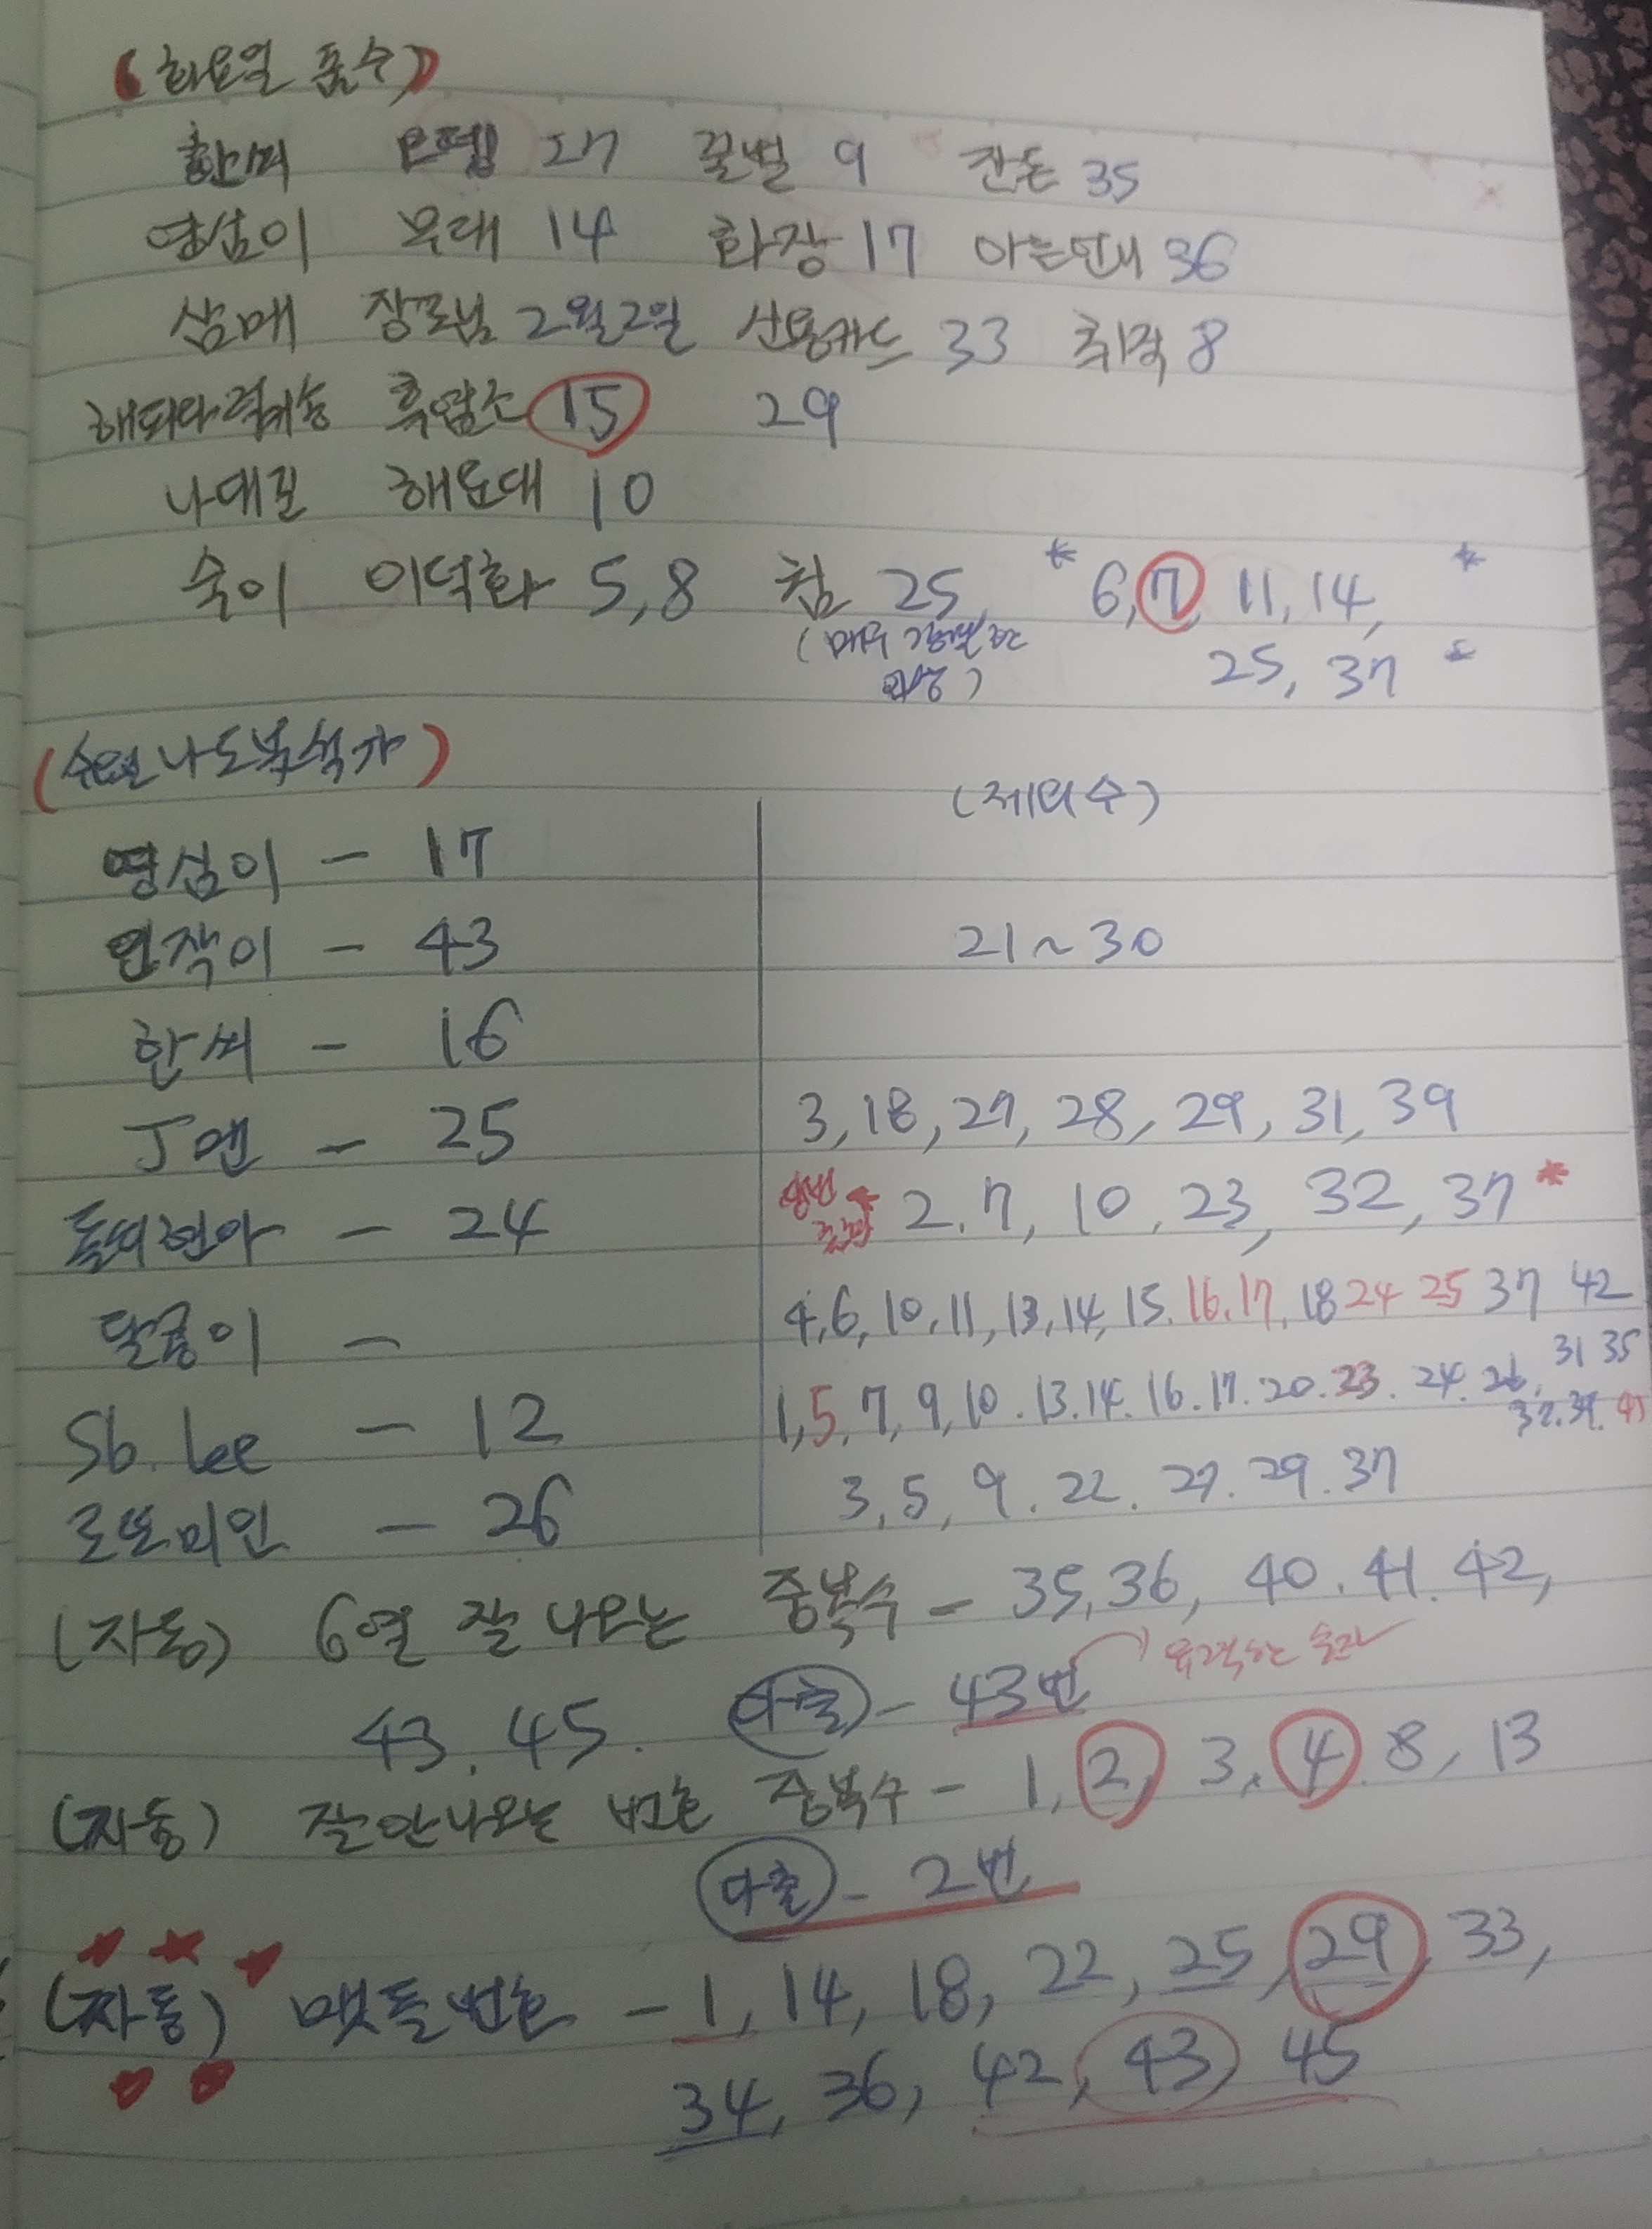 (화요일 품수)
한씨 27 꿀벌 9 잔돈 35
영심이 무대 14 화장 17 아는언니 36
삼매 장로님 2월2일 신용카드 33 취직 8
흑염소 15 29
나대로 해운대 10
숙이 이덕화 5,8 침 25, * 6, 7, 11, 14, *
25, 37
(수요일 나도분석가)
(제외수)
영심이 - 17
언작이 - 43 21~30
한씨 - 16
J엔 - 25 3, 18, 27, 28, 29, 31, 39
- 24 * 2, 7, 10, 23, 32, 37 *
달콩이 - 4, 6, 10, 11, 13, 14, 15. 16. 17, 18 24 25 37 42
Sb. lee - 12 1, 5, 7, 9, 10. 13. 14. 16. 17. 20. 23. 24. 26, 31 35
로또미인 - 26 3, 5, 9. 22. 27. 29. 37
(자동) 6열 잘 나오는 중복수 - 35, 36, 40. 41. 42,
43. 45. 다출 - 43번
(자동) 잘안나오는 번호 중복수 - 1, 2, 3, 4. 8, 13
다출 - 2번
(자동) 맷돌번호 - 1, 14, 18, 22, 25, 29, 33,
34, 36, 42, 43, 45